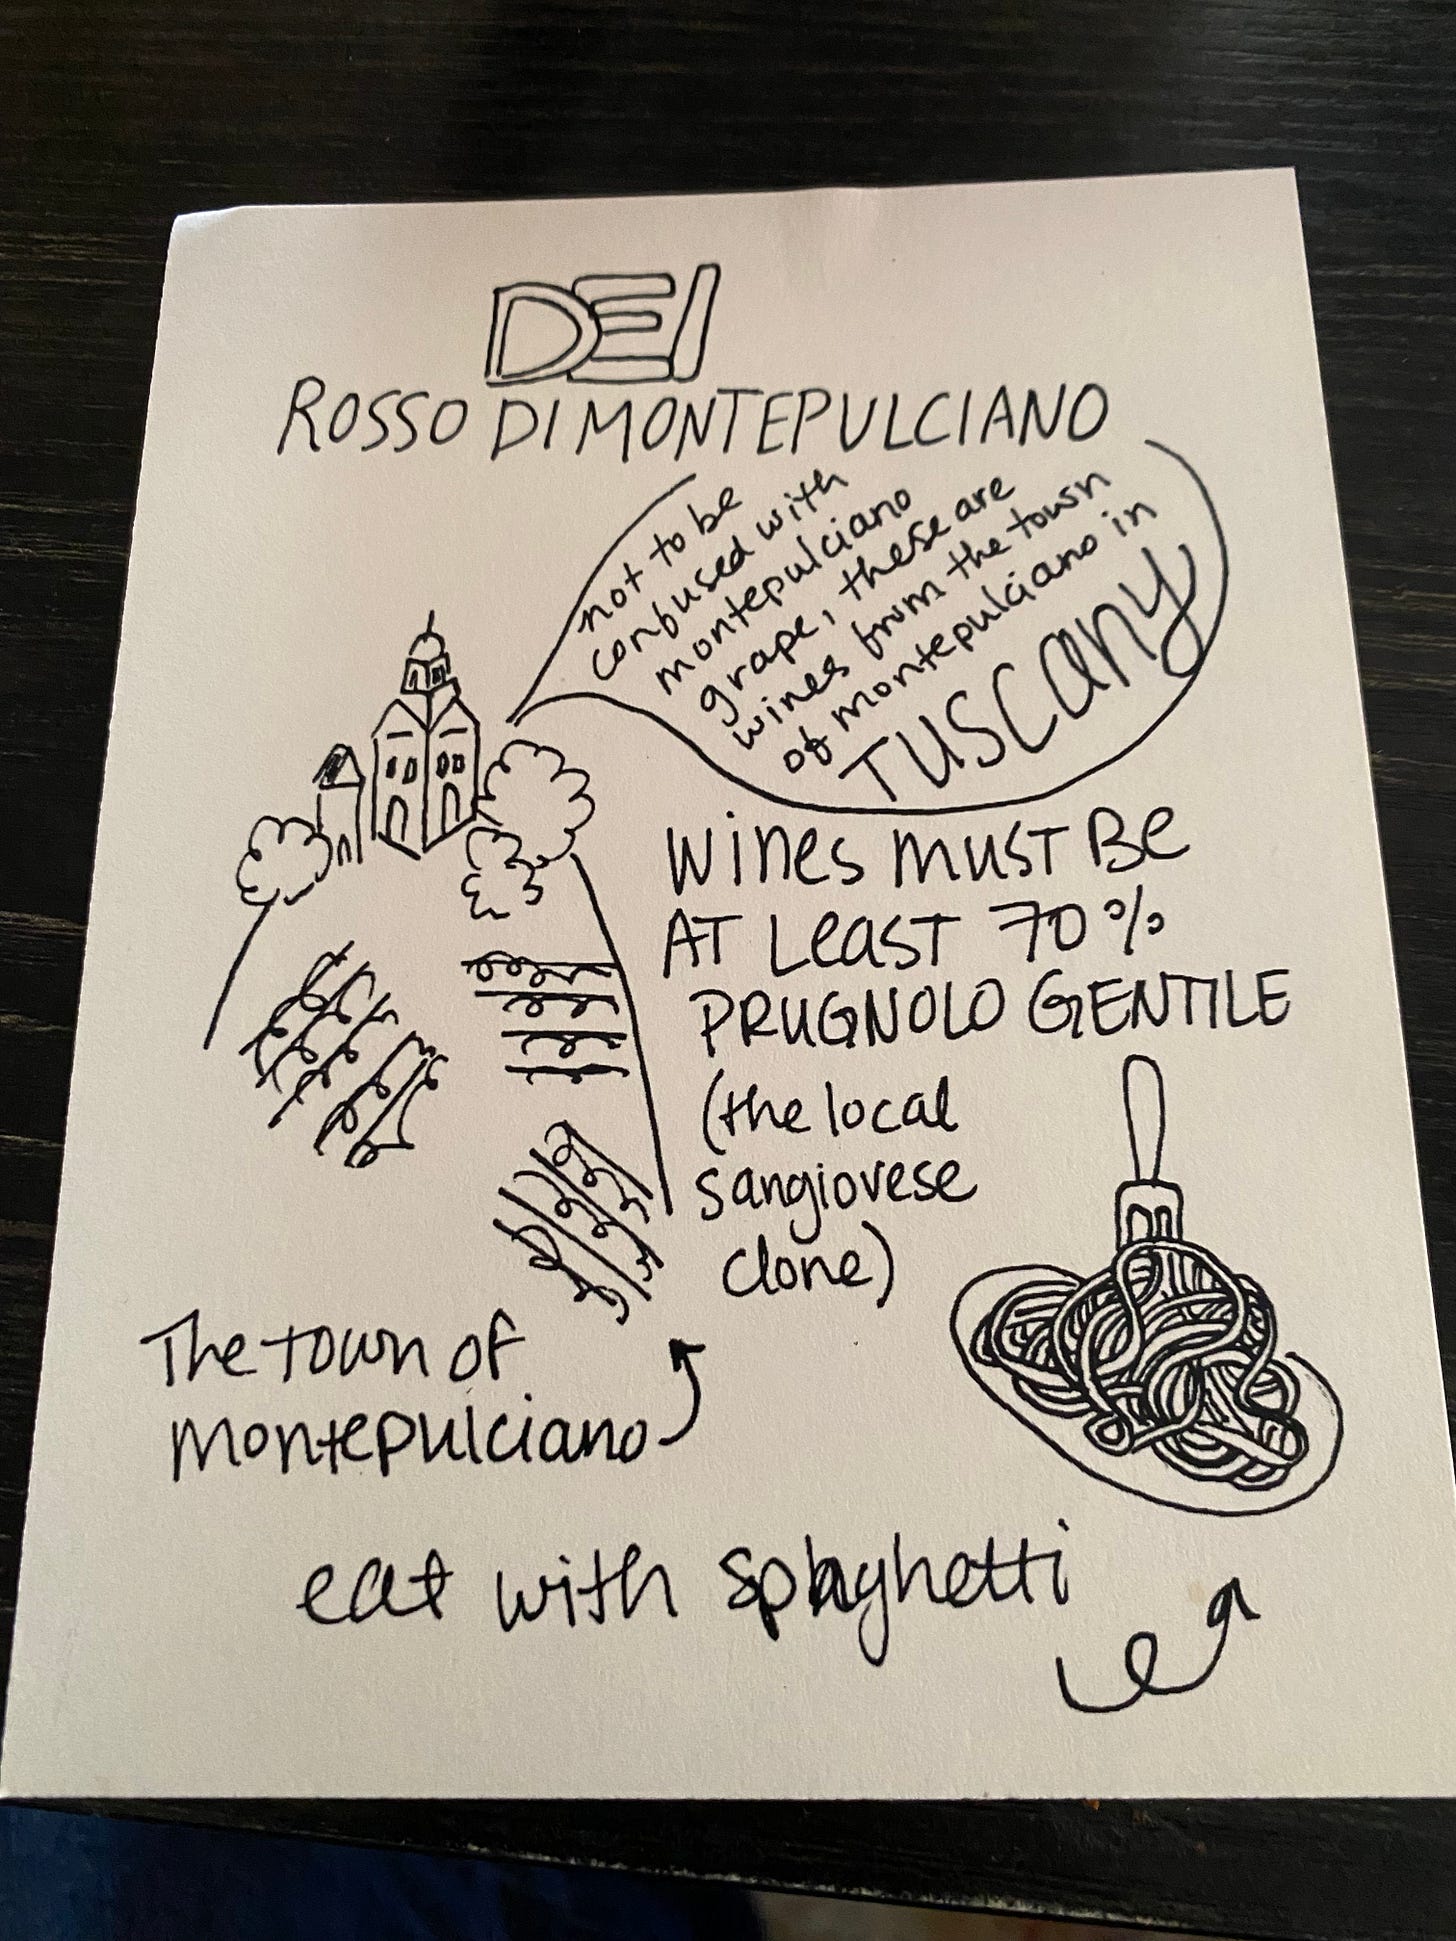 DEI
ROSSO DI MONTEPULCIANO
not to be
confused with
montepulciano
grape, these are
wines from the town
of montepulciano in
TUSCany
wines must Be
AT Least 70%
PRUGNOLO GENTILE
(the local
sangiovese
clone)
The town of
montepulciano
eat with spaghetti